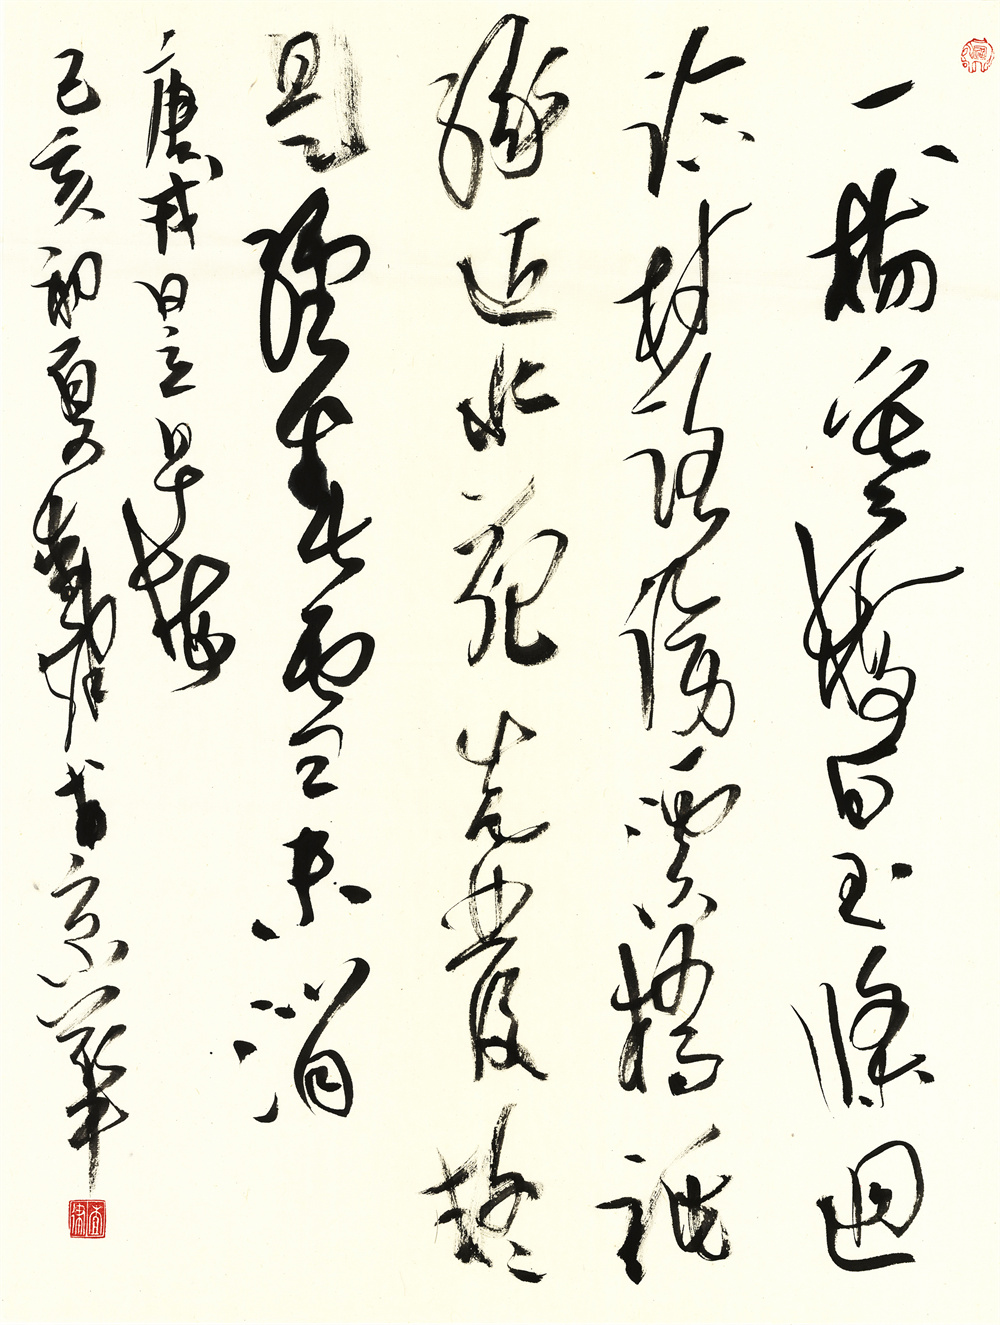 一樹寒梅白玉條迥
臨村路傍溪橋祇
緣近水花先發疑
是經春雪未消
唐戎昱早梅
己亥初夏查律書京華
查律